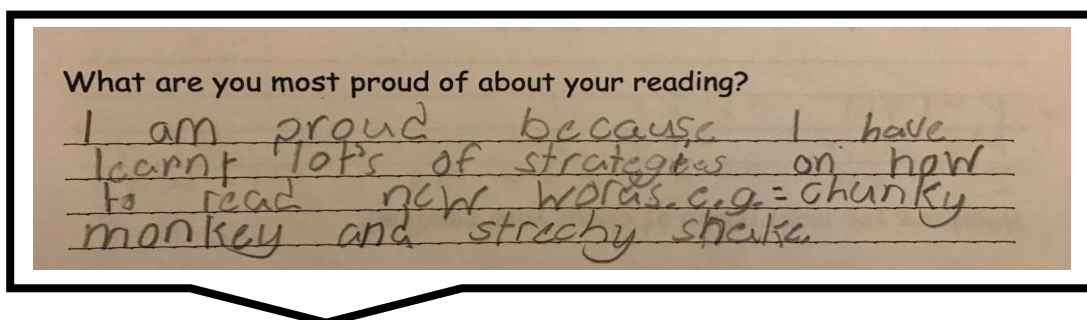 What are you most proud of about your reading?
I am proud because I have
learnt lot's of strategies on how
to read new words. e.g. = chunky
monkey and strechy shake.